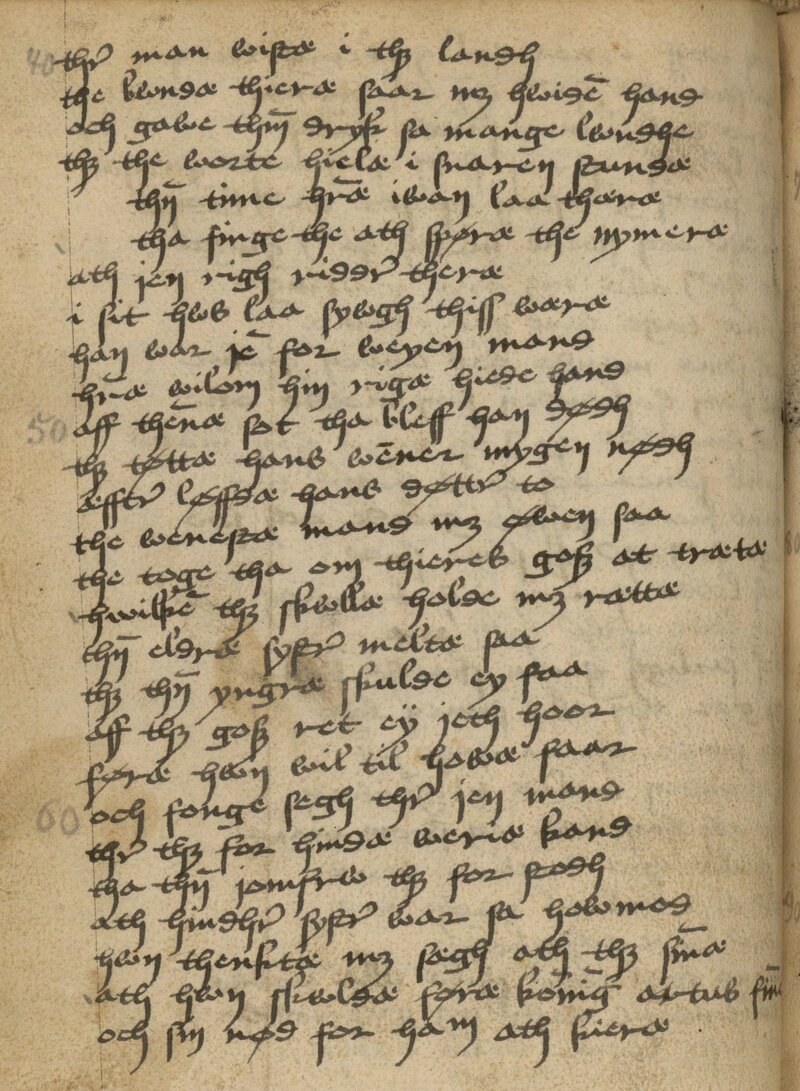 40 thr̄ man wistæ i thꝫ landh
the bwndæ thieræ saar mꝫ hwidē hand
och gawe thm̄ dryk sa mange lwndhe
thꝫ the worte hielæ i snaren stundæ
thn̄ time hr̄æ iwan laa thæræ
tha finge the ath spøræ the nymeræ
ath jen righ riddr̄ theræ
i sit hws laa sywgh thiss wæræ
han war jē for weyen mand
hr̄æ wilom hin rigæ hiede hand
50 aff then̄æ sot tha bleff han dødh
thꝫ tøttæ hans wēner mygen nødh
æfftr̄ løffdæ hans døttr̄ to
the wenestæ mand mꝫ øwen saa
the toge tha om thieres goꝫ at trætæ
hwilkē thꝫ skullæ holde mꝫ rættæ
thn̄ eldræ systr̄ meltæ saa
thꝫ thn̄ yngræ skulde ey faa
aff thꝫ goꝫ ret eÿ jeth hoor
føræ hwn wil til howæ faar
60 och fonge segh thr̄ jen mand
thr̄ thꝫ for hindæ weriæ kand
tha thn̄ jomfrw thꝫ for stodh
ath hindhr̄ systr̄ war sa howmod
hwn thenktæ mꝫ sægh ath thꝫ sin̄æ
ath hwn skuldæ føræ kōnīg artus
och sin nød for ham ath kieræ